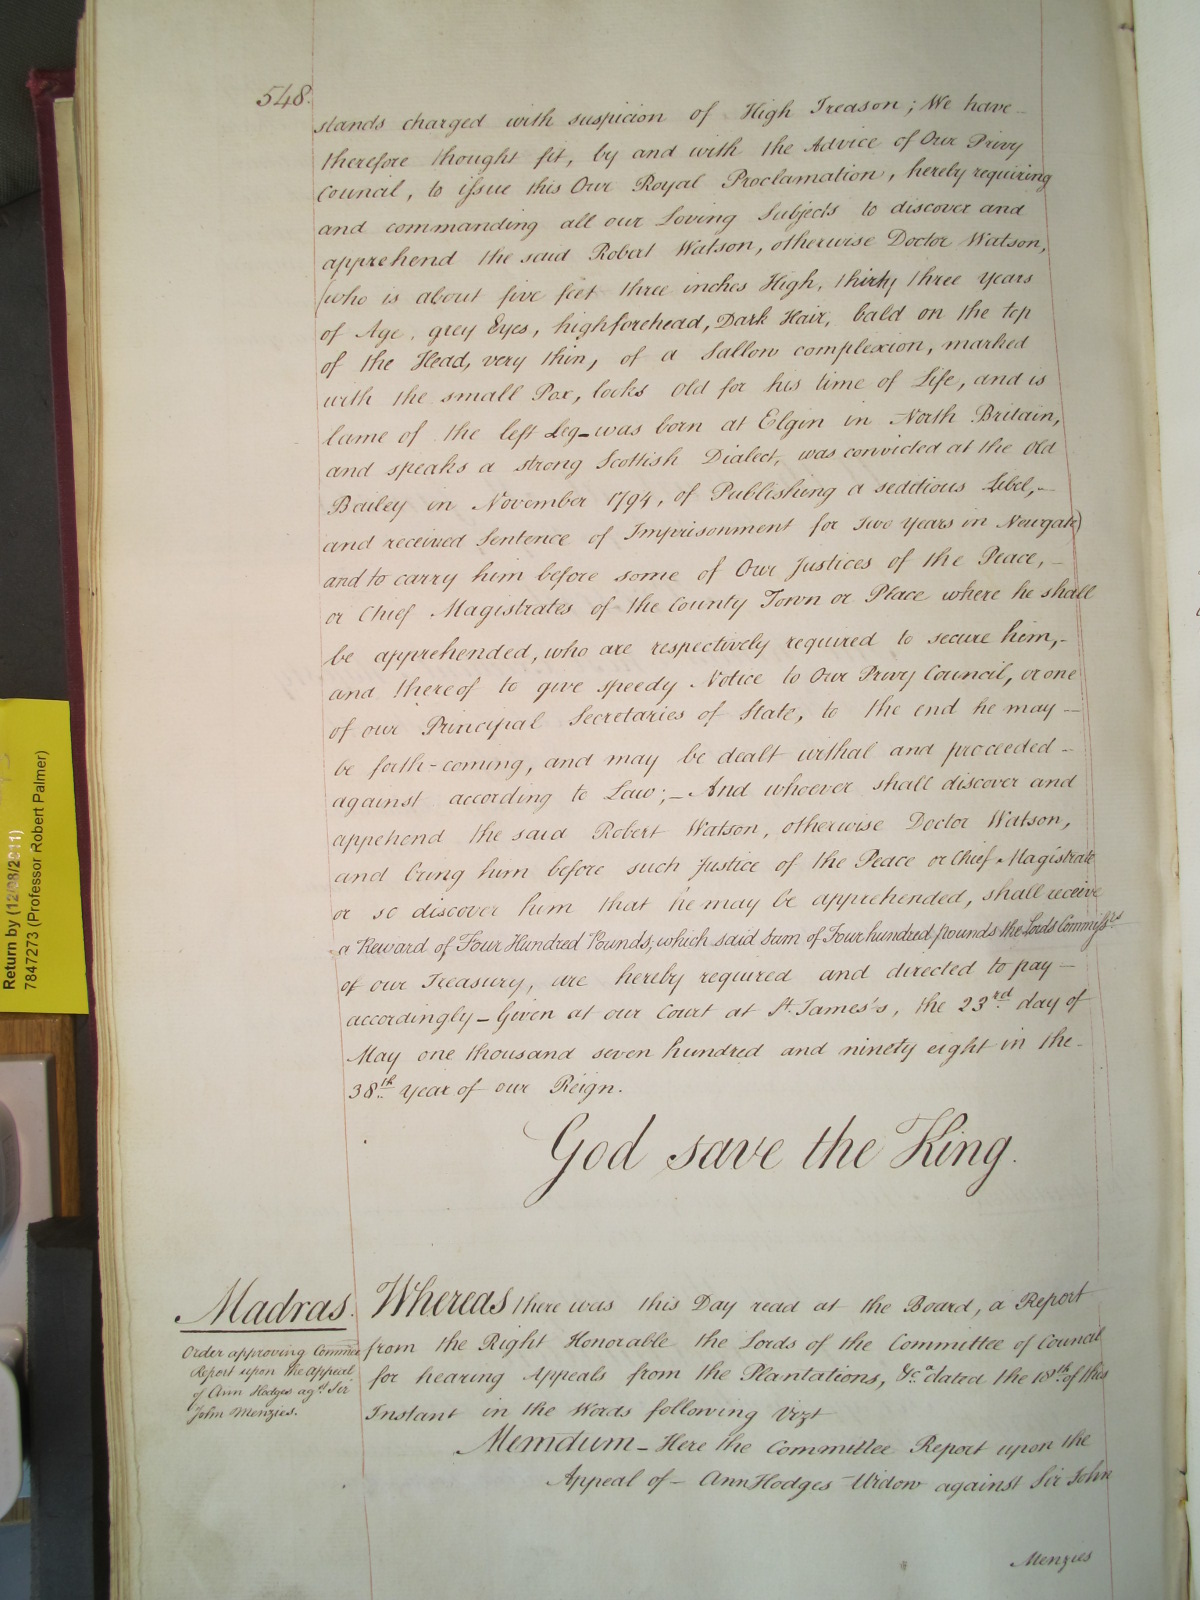 548.
stands charged with suspicion of High Treason; We have
therefore thought fit, by and with the Advice of Our Privy
Council, to issue this Our Royal Proclamation, hereby requiring
and commanding all our Loving Subjects to discover and
apprehend the said Robert Watson, otherwise Doctor Watson,
(who is about five feet three inches High, thirty three years
of Age, grey Eyes, high forehead, Dark Hair, bald on the top
of the Head, very thin, of a Sallow complexion, marked
with the small Pox, looks old for his time of Life, and is
lame of the left Leg - was born at Elgin in North Britain,
and speaks a strong Scottish Dialect, was convicted at the Old
Bailey in November 1794, of Publishing a seditious Libel, -
and received Sentence of Imprisonment for Two Years in Newgate)
and to carry him before some of Our Justices of the Peace, -
or Chief Magistrates of the County Town or Place where he shall
be apprehended, who are respectively required to secure him, -
and thereof to give speedy Notice to Our Privy Council, or one
of our Principal Secretaries of State, to the end he may -
be forth-coming, and may be dealt withal and proceeded -
against according to Law; - And whoever shall discover and
appehend the said Robert Watson, otherwise Doctor Watson,
and bring him before such Justice of the Peace or Chief Magistrate
or so discover him that he may be apprehended, shall receive
a Reward of Four Hundred Pounds, which said Sum of Four hundred pounds the Lords Commissrs
of our Treasury, are hereby required and directed to pay -
accordingly - Given at our Court at St. James's, the 23rd day of
May one thousand seven hundred and ninety eight in the -
38th Year of our Reign.
God save the King.
Madras.
Order approving Commee
Report upon the Appeal
of Ann Hodges agst Sir
John Menzies.
Whereas there was this Day read at the Board, a Report
from the Right Honorable the Lords of the Committee of Council
for hearing Appeals from the Plantations, &ca dated the 18th of this
Instant in the Words following Vizt
Memdum - Here the Committee Report upon the
Appeal of - Ann Hodges Widow against Sir John
Menzies
Return by (12/08/2011)
7847273 (Professor Robert Palmer)